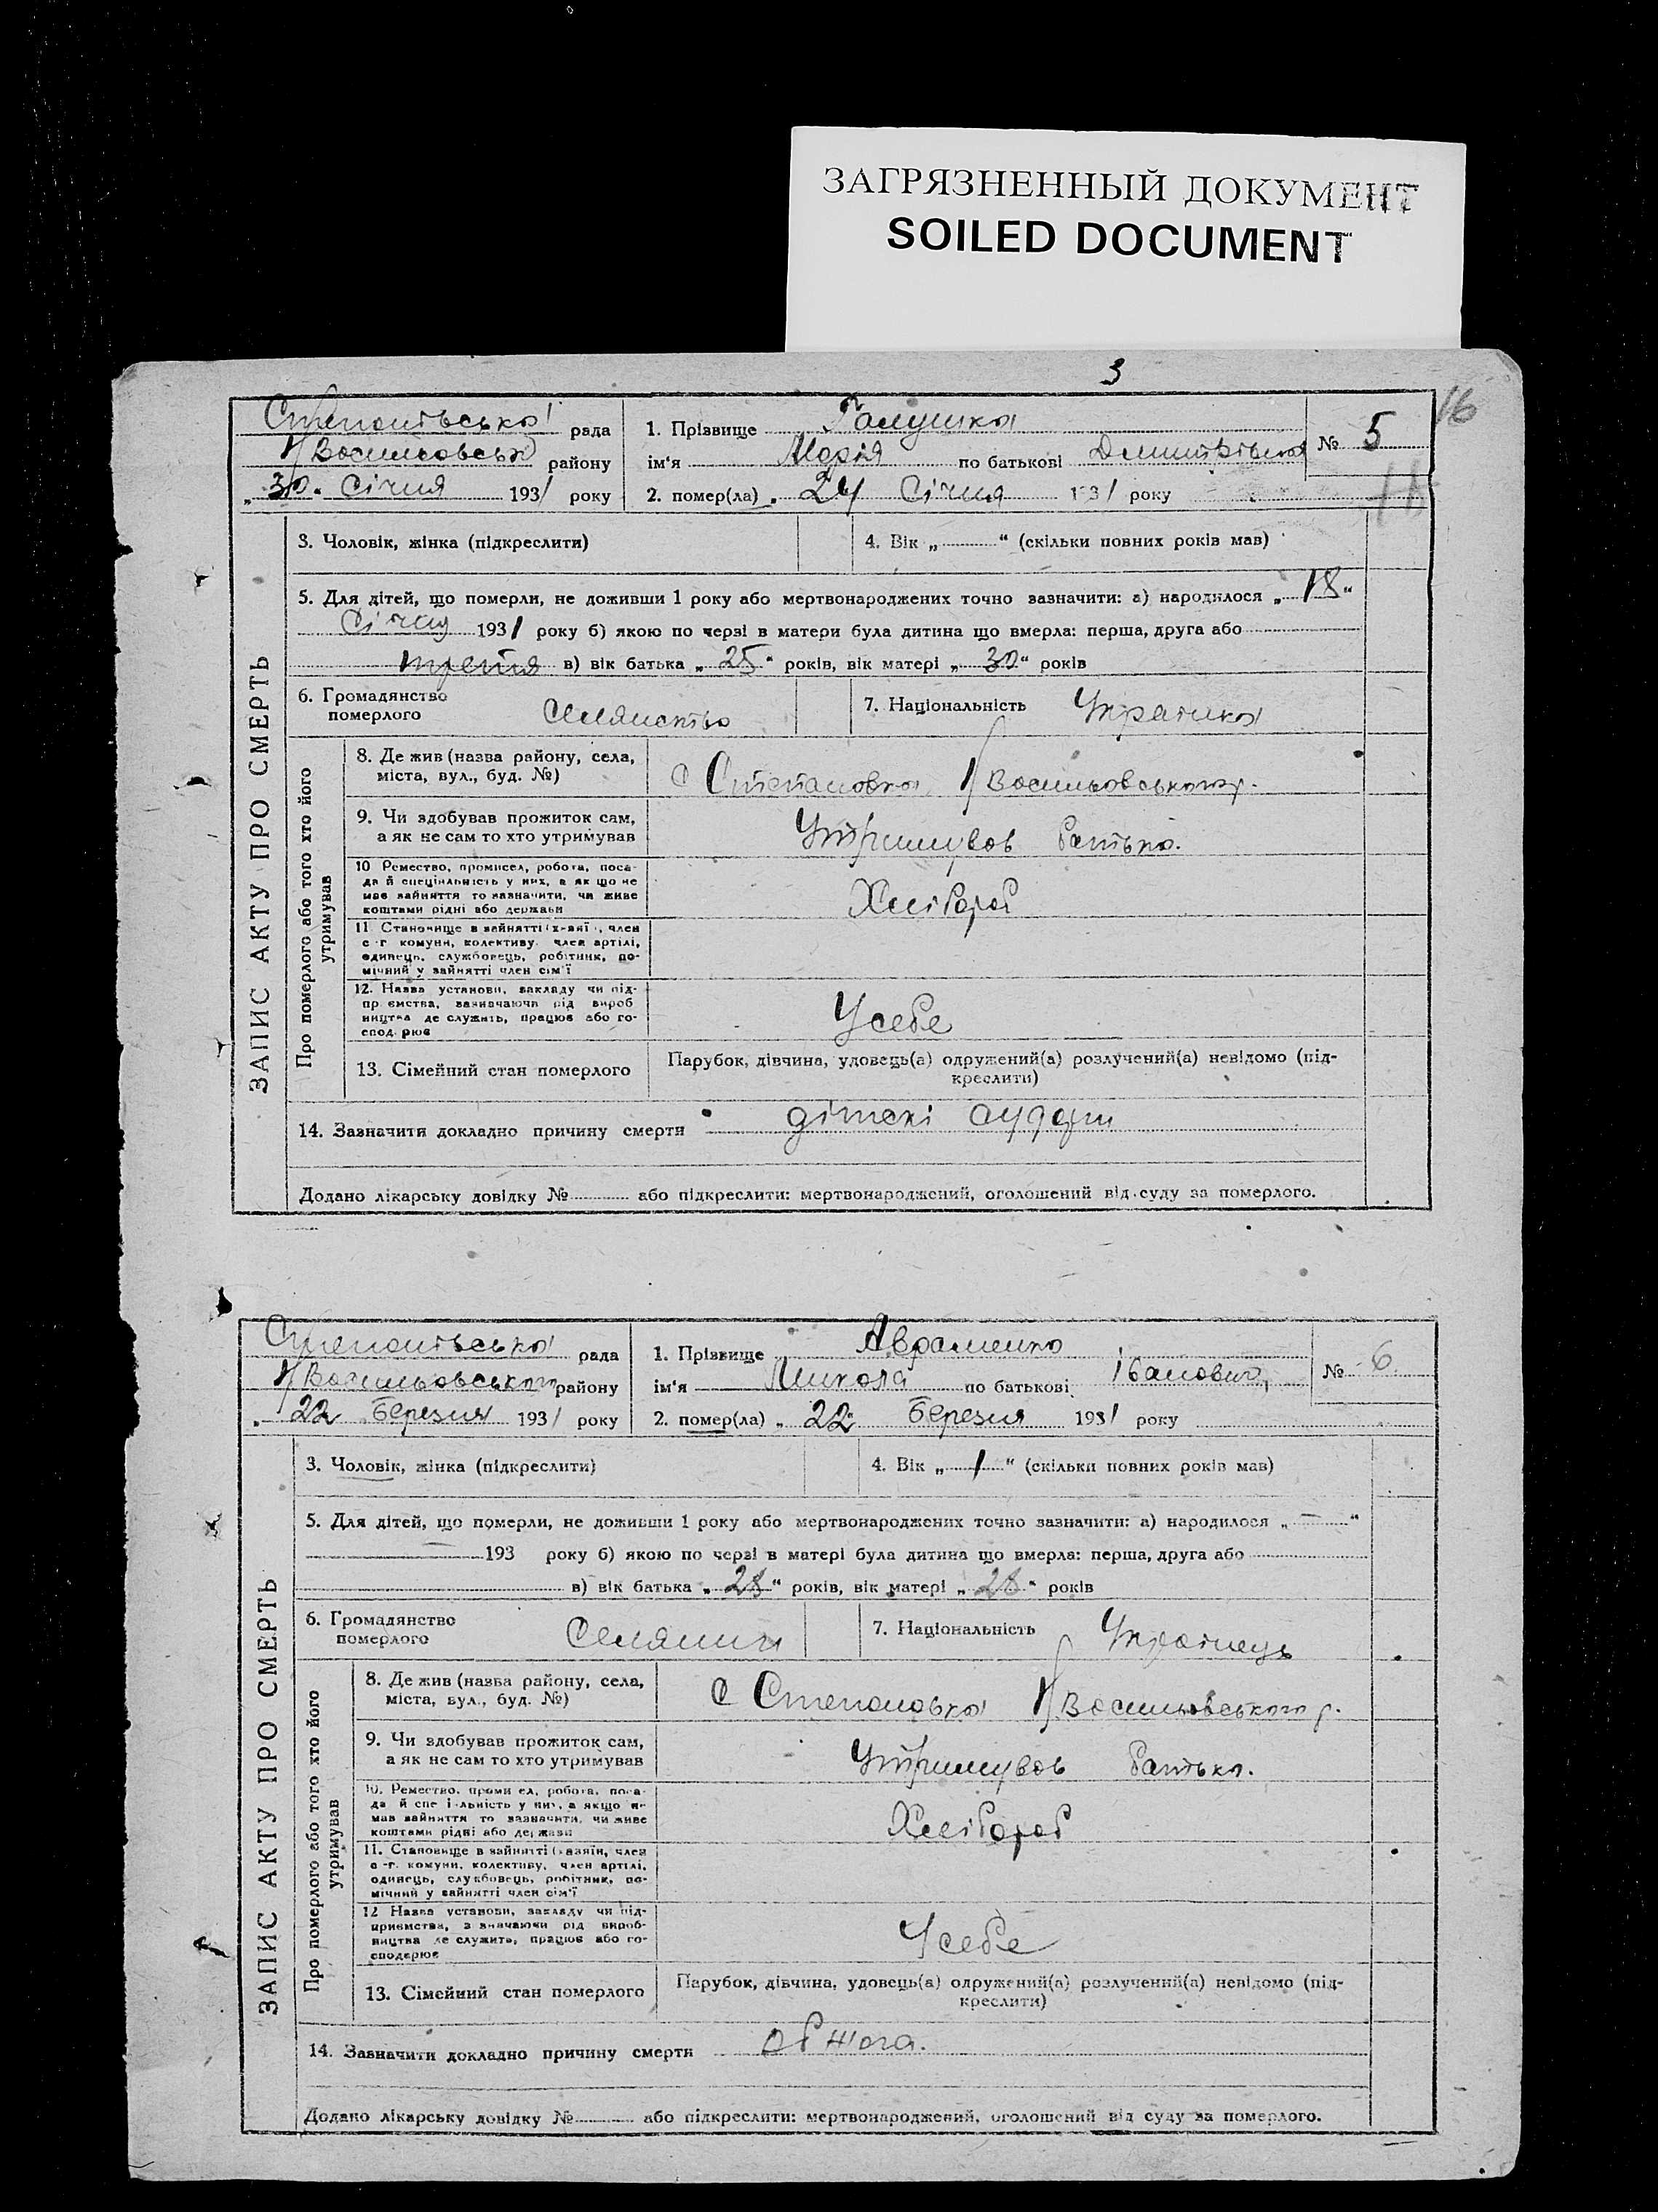 ЗАГРЯЗНЕННЫЙ ДОКУМЕНТ
SOILED DOCUMENT
3
16
Степанівська рада
Н/Василівськ району
„30“ Січня 1931 року
1. Прізвище Галушка
ім‘я Марія по батькові Дмитрівна
2. помер(ла) „ 24 Січня 1931 року
№ 5
ЗАПИС АКТУ ПРО СМЕРТЬ
3. Чоловік, жінка (підкреслити)
4. Вік „ “ (скільки повних років мав)
5. Для дітей, що померли, не доживши 1 року або мертвонароджених точно зазначити: а) народилося „18“
Січня 1931 року б) якою по черзі в матери була дитина що вмерла: перша, друга або
третя в) вік батька „25“ років, вік матері „30“ років
6. Громадянство
померлого
Селянство
7. Національність Українка
Про померлого або того хто його
утримував
8. Де жив (назва району, села,
міста, вул., буд. №)
с Степановка Н/Васильовського р.
9. Чи здобував прожиток сам,
а як не сам то хто утримував
Утримував батько.
10 Ремество, промисел, робота, поса-
да й спеціяльність у них, а як що не
мав зайняття то зазначити, чи живе
коштами рідні або держави
Хлібороб
11 Становище в зайнятті (х-зяї , член
с-г комуни, колективу, член артілі,
одинець, службовець, робітник, по-
мічний у зайнятті член сім‘ї
12. Назва установи, закладу чи під-
пр ємства, зазначаючи рід вироб
ництва де служить, працює або го-
спод. рює
У себе
13. Сімейний стан померлого
Парубок, дівчина, удовець(а) одружений(а) розлучений(а) невідомо (під-
креслити)
14. Зазначити докладно причину смерти дітскі судоги
Додано лікарську довідку № або підкреслити: мертвонароджений, оголошений від суду за померлого.
Степанівська рада
Н/Васильовського району
„ 22 Березня 1931 року
1. Прізвище Авраменко
ім‘я Микола по батькові Іванович
2. помер(ла) „ 22“ Березня 1931 року
№ 6.
ЗАПИС АКТУ ПРО СМЕРТЬ
3. Чоловік, жінка (підкреслити)
4. Вік „ 1 “ (скільки повних років мав)
5. Для дітей, що померли, не доживши 1 року або мертвонароджених точно зазначити: а) народилося „ — “
— 193 року б) якою по черзі в матері була дитина що вмерла: перша, друга або
в) вік батька „28“ років, вік матері „28“ років
6. Громадянство
померлого
Селянин
7. Національність Українець
Про померлого або того хто його
утримував
8. Де жив (назва району, села,
міста, вул., буд. №)
с Степановка Н/Васильовського р.
9. Чи здобував прожиток сам,
а як не сам то хто утримував
Утримував батько.
10. Ремество, проми ел, робота, поса-
да й спе і льність у них, а якщо не
мав зайняття то зазначити, чи живе
коштами рідні або держави
Хлібороб
11. Становище в зайнятті (хазяїн, член
с-г. комуни, колективу, член артілі,
одинець, службовець, робітник, по-
мічний у зайнятті член сім‘ї
12 Назва установи, закладу чи під-
приємства, з значаючи рід вироб-
ництва де служить, працює або го-
сподарює
У себе
13. Сімейний стан померлого
Парубок, дівчина, удовець(а) одружений(а) розлучений(а) невідомо (під-
креслити)
14. Зазначити докладно причину смерти обжога.
Додано лікарську довідку № або підкреслити: мертвонароджений, оголошений від суду за померлого.